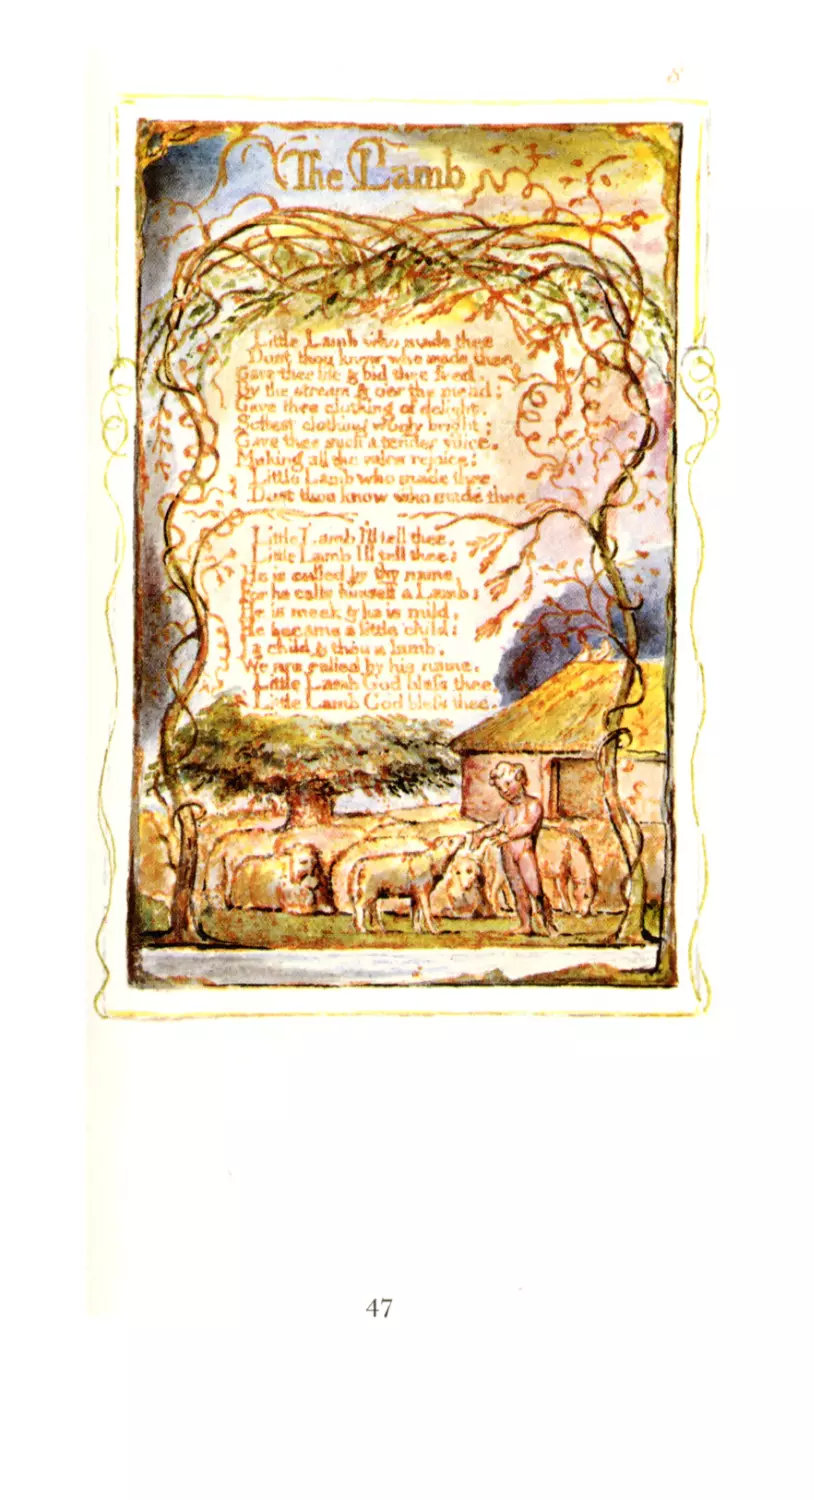 8
The Lamb
Little Lamb who made thee
Dost thou know who made thee
Gave thee life & bid thee feed.
By the stream & oer the mead;
Gave thee clothing of delight,
Softest clothing wooly bright;
Gave thee such a tender voice,
Making all the vales rejoice:
Little Lamb who made thee
Dost thou know who made thee
Little Lamb I'll tell thee,
Little Lamb I'll tell thee;
He is called by thy name,
For he calls himself a Lamb:
He is meek & he is mild,
He became a little child:
I a child & thou a lamb,
We are called by his name.
Little Lamb God bless thee.
Little Lamb God bless thee.
47